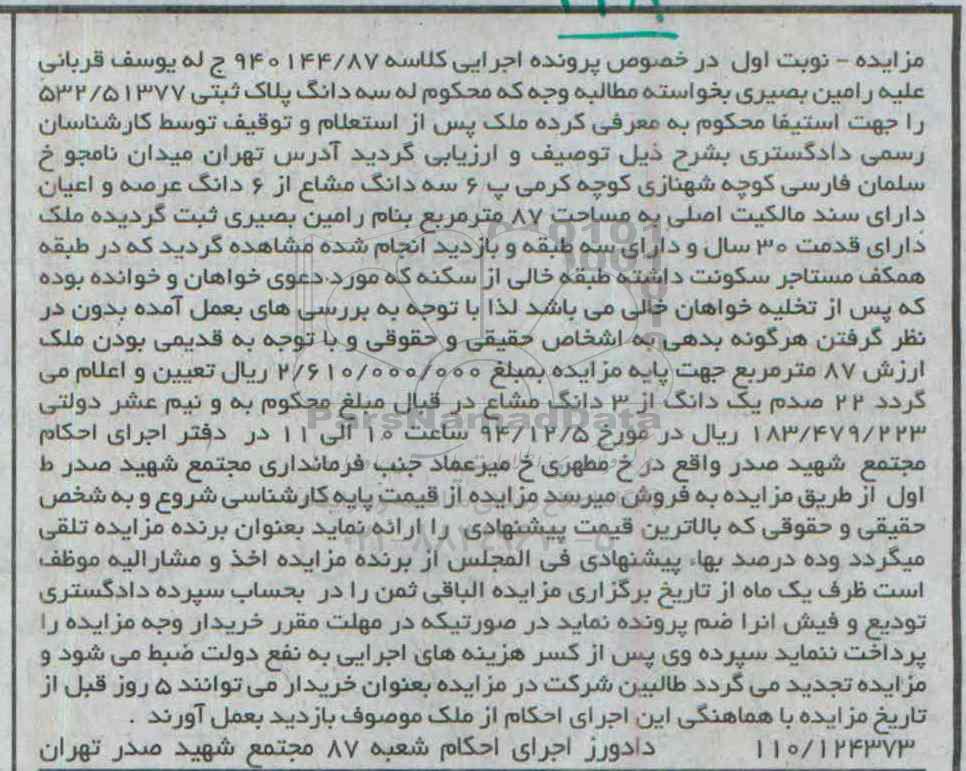 مزایده - نوبت اول در خصوص پرونده اجرایی کلاسه ۹۴۰۱۴۴/۸۷ ج له یوسف قربانی
علیه رامین بصیری بخواسته مطالبه وجه که محکوم له سه دانگ پلاک ثبتی ۵۳۲/۵۱۳۷۷
را جهت استیفا محکوم به معرفی کرده ملک پس از استعلام و توقیف توسط کارشناسان
رسمی دادگستری بشرح ذیل توصیف و ارزیابی گردید آدرس تهران میدان نامجو خ
سلمان فارسی کوچه شهنازی کوچه کرمی پ ۶ سه دانگ مشاع از ۶ دانگ عرصه و اعیان
دارای سند مالکیت اصلی به مساحت ۸۷ مترمربع بنام رامین بصیری ثبت گردیده ملک
دارای قدمت ۳۰ سال و دارای سه طبقه و بازدید انجام شده مشاهده گردید که در طبقه
همکف مستاجر سکونت داشته طبقه خالی از سکنه که مورد دعوی خواهان و خوانده بوده
که پس از تخلیه خواهان خالی می باشد لذا با توجه به بررسی های بعمل آمده بدون در
نظر گرفتن هرگونه بدهی به اشخاص حقیقی و حقوقی و با توجه به قدیمی بودن ملک
ارزش ۸۷ مترمربع جهت پایه مزایده بمبلغ ۲/۶۱۰/۰۰۰/۰۰۰ ریال تعیین و اعلام می
گردد ۲۲ صدم یک دانگ از ۳ دانگ مشاع در قبال مبلغ محکوم به و نیم عشر دولتی
۱۸۳/۴۷۹/۲۲۳ ریال در مورخ ۹۴/۱۲/۵ ساعت ۱۰ الی ۱۱ در دفتر اجرای احکام
مجتمع شهید صدر واقع در خ مطهری خ میرعماد جنب فرمانداری مجتمع شهید صدر ط
اول از طریق مزایده به فروش میرسد مزایده از قیمت پایه کارشناسی شروع و به شخص
حقیقی و حقوقی که بالاترین قیمت پیشنهادی را ارائه نماید بعنوان برنده مزایده تلقی
میگردد وده درصد بهاء پیشنهادی فی المجلس از برنده مزایده اخذ و مشارالیه موظف
است ظرف یک ماه از تاریخ برگزاری مزایده الباقی ثمن را در بحساب سپرده دادگستری
تودیع و فیش انرا ضم پرونده نماید در صورتیکه در مهلت مقرر خریدار وجه مزایده را
پرداخت ننماید سپرده وی پس از کسر هزینه های اجرایی به نفع دولت ضبط می شود و
مزایده تجدید می گردد طالبین شرکت در مزایده بعنوان خریدار می توانند ۵ روز قبل از
تاریخ مزایده با هماهنگی این اجرای احکام از ملک موصوف بازدید بعمل آورند .
۱۱۰/۱۲۴۳۷۳ دادورز اجرای احکام شعبه ۸۷ مجتمع شهید صدر تهران
ParsNamadData